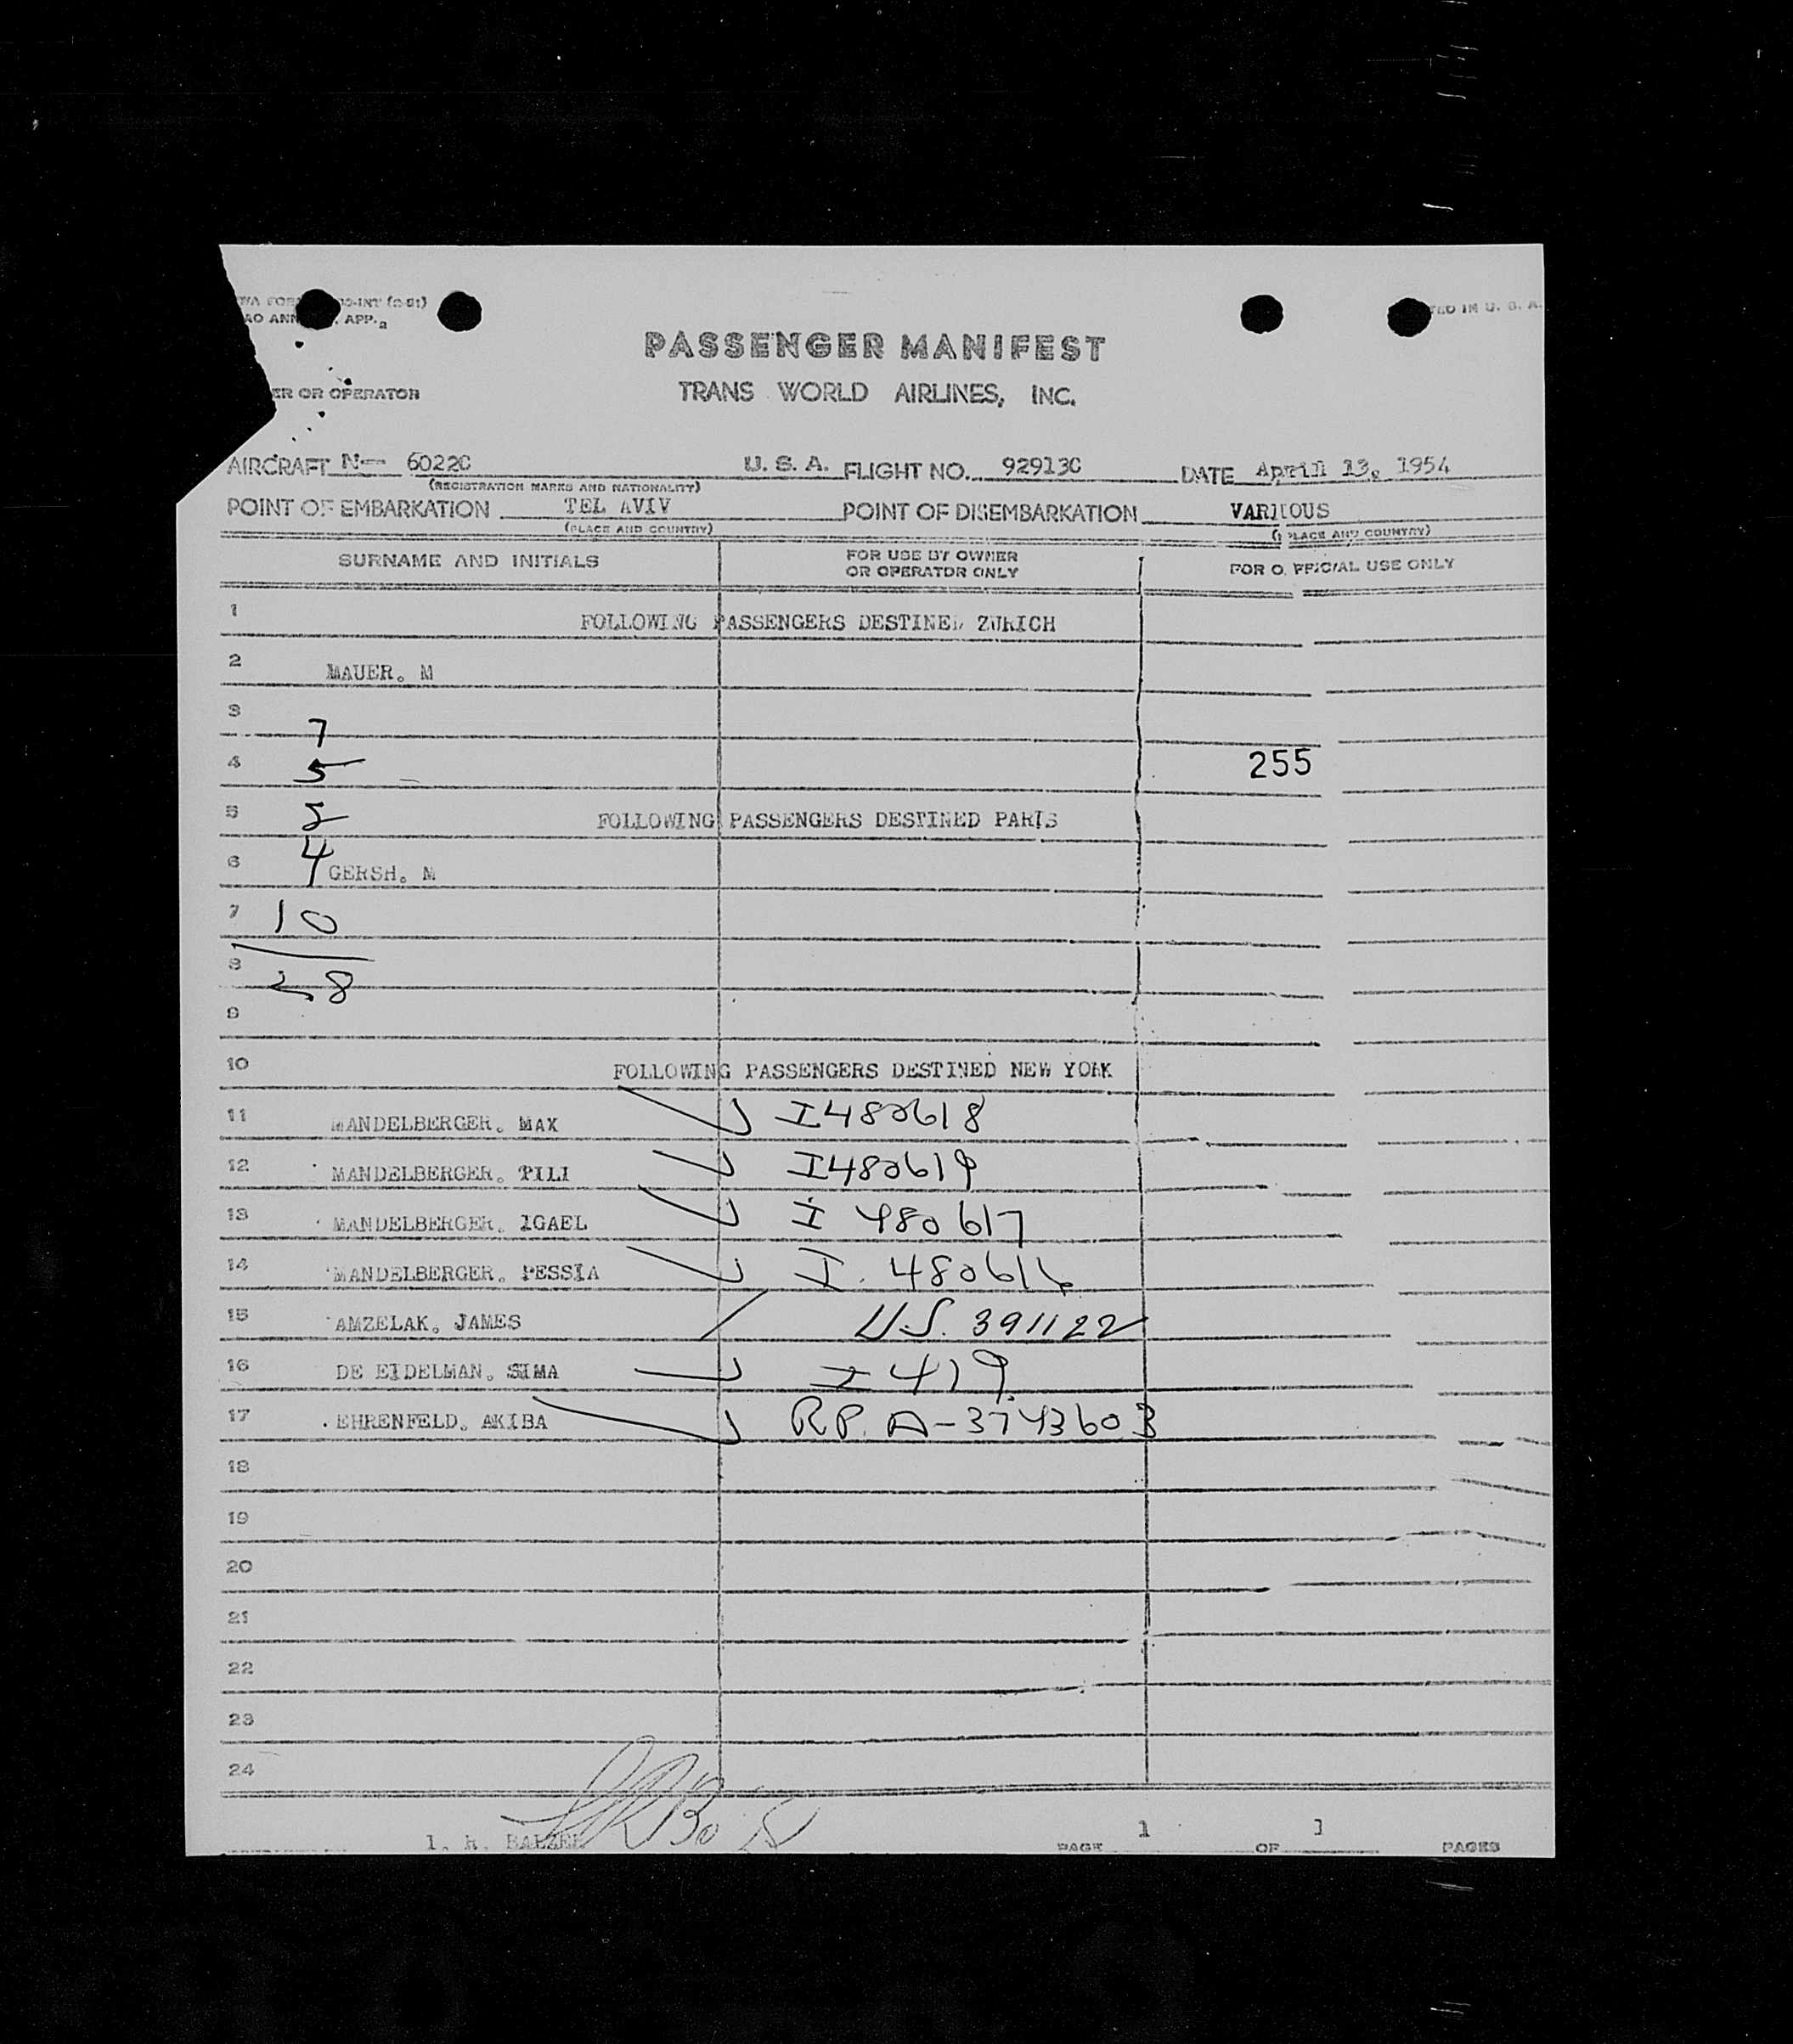 WA FOR 30-INT (2-51)
AO ANN . APP. 2
TED IN U. S. A.
PASSENGER MANIFEST
ER OR OPERATOR
TRANS WORLD AIRLINES, INC.
AIRCRAFT N-- 6022C U. S. A. FLIGHT NO. 92913C DATE April 13, 1954
(REGISTRATION MARKS AND NATIONALITY)
POINT OF EMBARKATION TEL AVIV POINT OF DISEMBARKATION VARIOUS
(PLACE AND COUNTRY) (PLACE AND COUNTRY)
SURNAME AND INITIALS FOR USE BY OWNER OR OPERATOR ONLY FOR OFFICIAL USE ONLY
1 FOLLOWING PASSENGERS DESTINED ZURICH
2 MAUER. M
3
7
4 5 255
5 2 FOLLOWING PASSENGERS DESTINED PARIS
6 4 GERSH. M
7 10
8 28
9
10 FOLLOWING PASSENGERS DESTINED NEW YORK
11 MANDELBERGER. MAX I480618
12 MANDELBERGER. TILI I480619
13 MANDELBERGER. IGAEL I 480617
14 MANDELBERGER. PESSIA I. 480616
15 AMZELAK. JAMES U.S. 391122
16 DE EIDELMAN. SIMA I 419
17 EHRENFELD. AKIBA R.P. A-3743603
18
19
20
21
22
23
24
PAGE 1 OF 1 PAGES